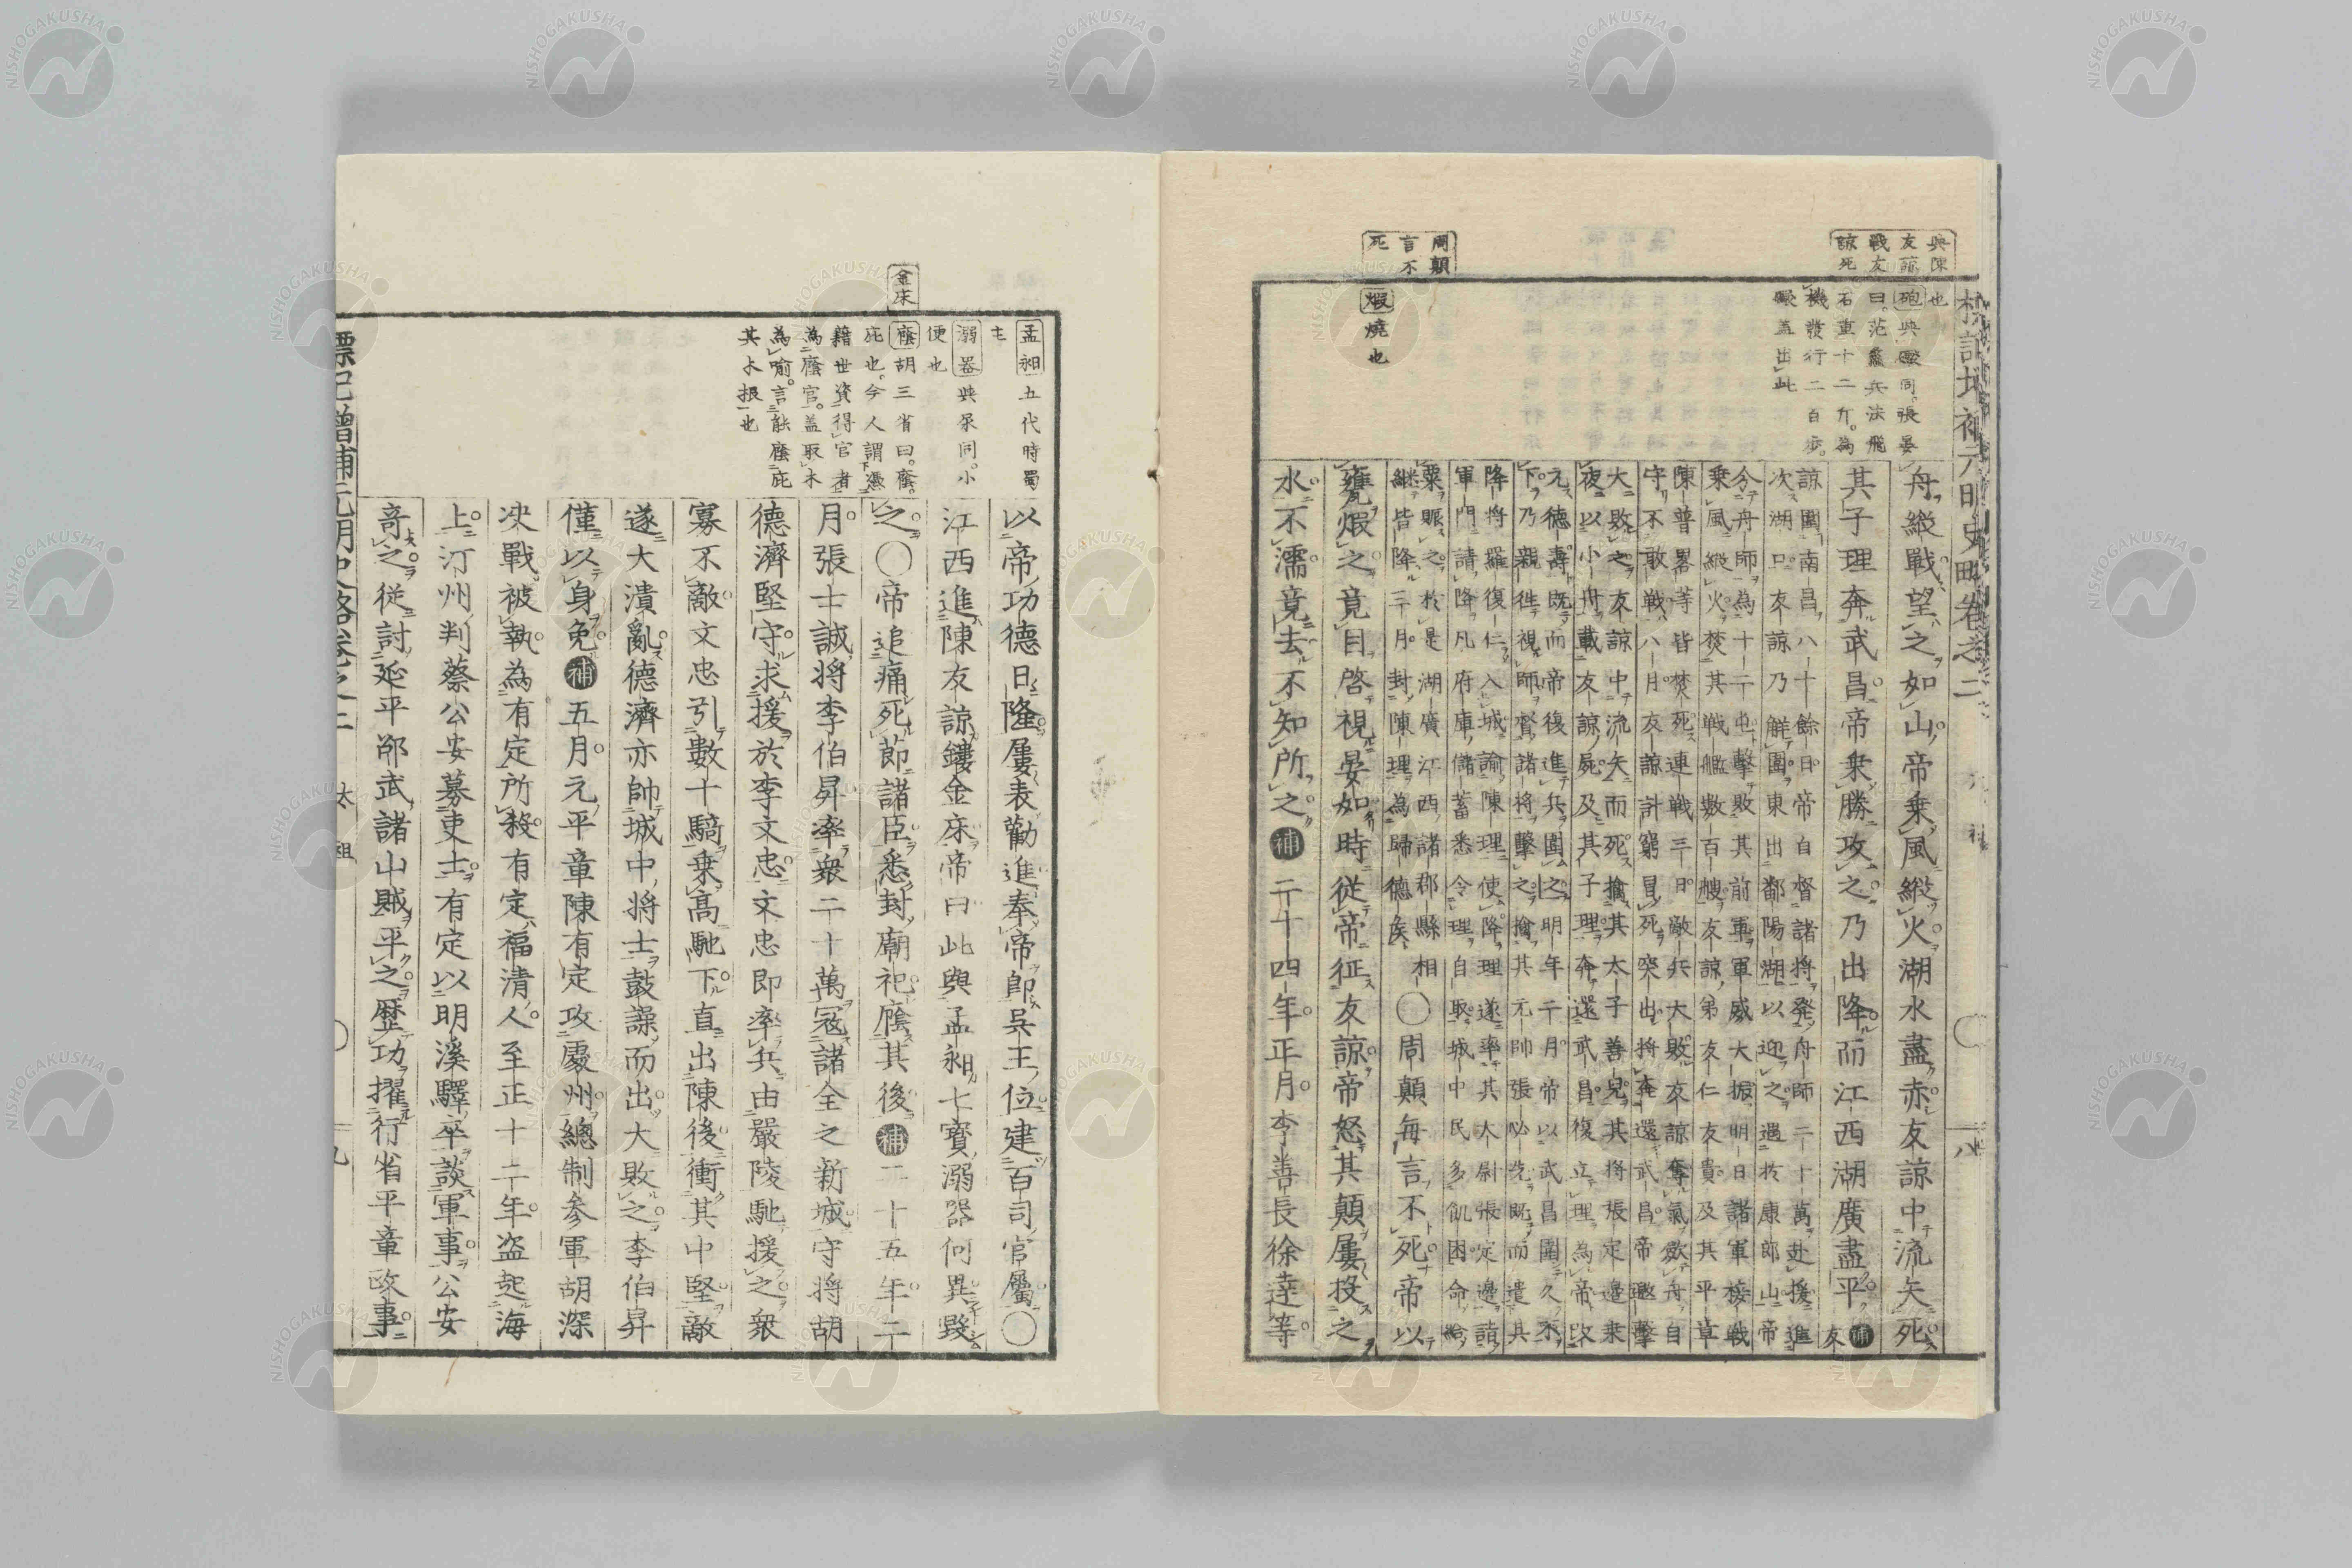 與陳
友諒
戰友
諒死
周顛
言不
死
也
砲與礮同張晏
曰范蠡兵法飛
石重十二斤為
機發行二百步
礮蓋出此
煆燒
也
標記增補元明史略卷之二
舟縱戰望之如山帝乘風縱火湖水盡赤友諒中流矢死
其子理奔武昌帝乘勝攻之乃出降而江西湖廣盡平補友
諒圍南昌八十餘日帝自督諸將発舟師二十萬赴援進
次湖口友諒乃解圍東出鄱陽湖以迎之遇於康郎山帝
分舟師為十一屯擊敗其前軍軍威大振明日諸軍接戰
乘風縱火焚其戰艦數百艘友諒弟友仁友貴及其平章
陳普畧等皆焚死連戰三日敵兵大敗友諒奪氣歛舟自
守不敢戰八月友諒計窮冒死突出將奔還武昌帝邀擊
大敗之友諒中流矢而死擒其太子善兒其將張定邊乘
夜以小舟載友諒屍及其子理奔還武昌復立理為帝改
元德壽既而帝復進兵圍之明年二月帝以武昌圍久不
下乃親往視師督諸將擊之擒其元帥張必先既而遣其
降將羅復仁入城諭陳理使降理遂率其太尉張定邊詣
軍門請降凡府庫儲蓄悉令理自取城中民多飢困命給
粟賑之於是湖廣江西諸郡縣相
継皆降三月封陳理為歸德侯
〇周顛每言不死帝以
甕煆之竟目啓視晏如時從帝征友諒帝怒其顛屢投之
水不濡竟去不知所之補二十四年正月李善長徐達等
金床
孟昶五代時蜀
主
溺器與尿同小
便也
廕胡三省曰廕
庇也今人謂憑
藉世資得官者
為廕官蓋取木
為喻言能廕庇
其本根也
以帝功德日隆屢表勸進奉帝卽吳王位建百司官屬〇
江西進陳友諒鏤金床帝曰此與孟昶七寶溺器何異毀
之〇帝追痛死節諸臣悉封廟祀廕其後補二十五年二
月張士誠將李伯昇率衆二十萬寇諸全之新城守將胡
德濟堅守求援於李文忠文忠即率兵由嚴陵馳援之衆
寡不敵文忠引數十騎乘高馳下直出陳後衝其中堅敵
遂大潰亂德濟亦帥城中將士鼓譟而出大敗之李伯昇
僅以身免補五月元平章陳有定攻處州總制参軍胡深
决戰被執為有定所殺有定福清人至正十二年盗起海
上汀州判蔡公安募吏士有定以明溪驛卒談軍事公安
竒之從討延平邵武諸山賊平之歷功擢行省平章政事
標記增補元明史略卷之二 太祖 〇 十九